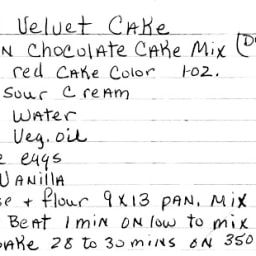 Velvet Cake
N Chocolate Cake Mix (D
red Cake Color 1-oz.
Sour Cream
Water
Veg. oil
e eggs
Vanilla
se + flour 9x13 pan. Mix
Beat 1 min on low to mix
ake 28 to 30 mins on 350